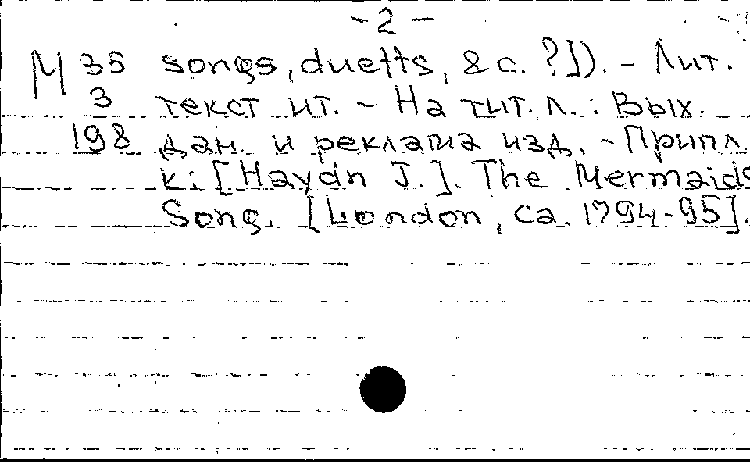 - 2 -
М 35 songs, duetts, & c. ?]). - Лит.
3 текст ит. - На тит. л.: Вых.
198 дан. и реклама изд. - Припл.
к: [Haydn J.]. The Mermaids
Song. [London, ca. 1794-95].